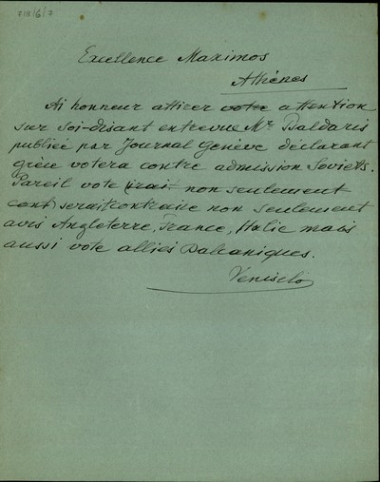 718/6/7
Excellence Maximos
Athènes
Ai honneur attirer votre attention
sur soi-disant entrevue Mr Psaldaris
publiée par Journal Genève déclarant
grèce votera contre admission Soviets.
Pareil vote irait non seulement
cont serait contraire non seulement
avis Angleterre, France, Italie mais
aussi vote alliés Balcaniques.
Veniselos